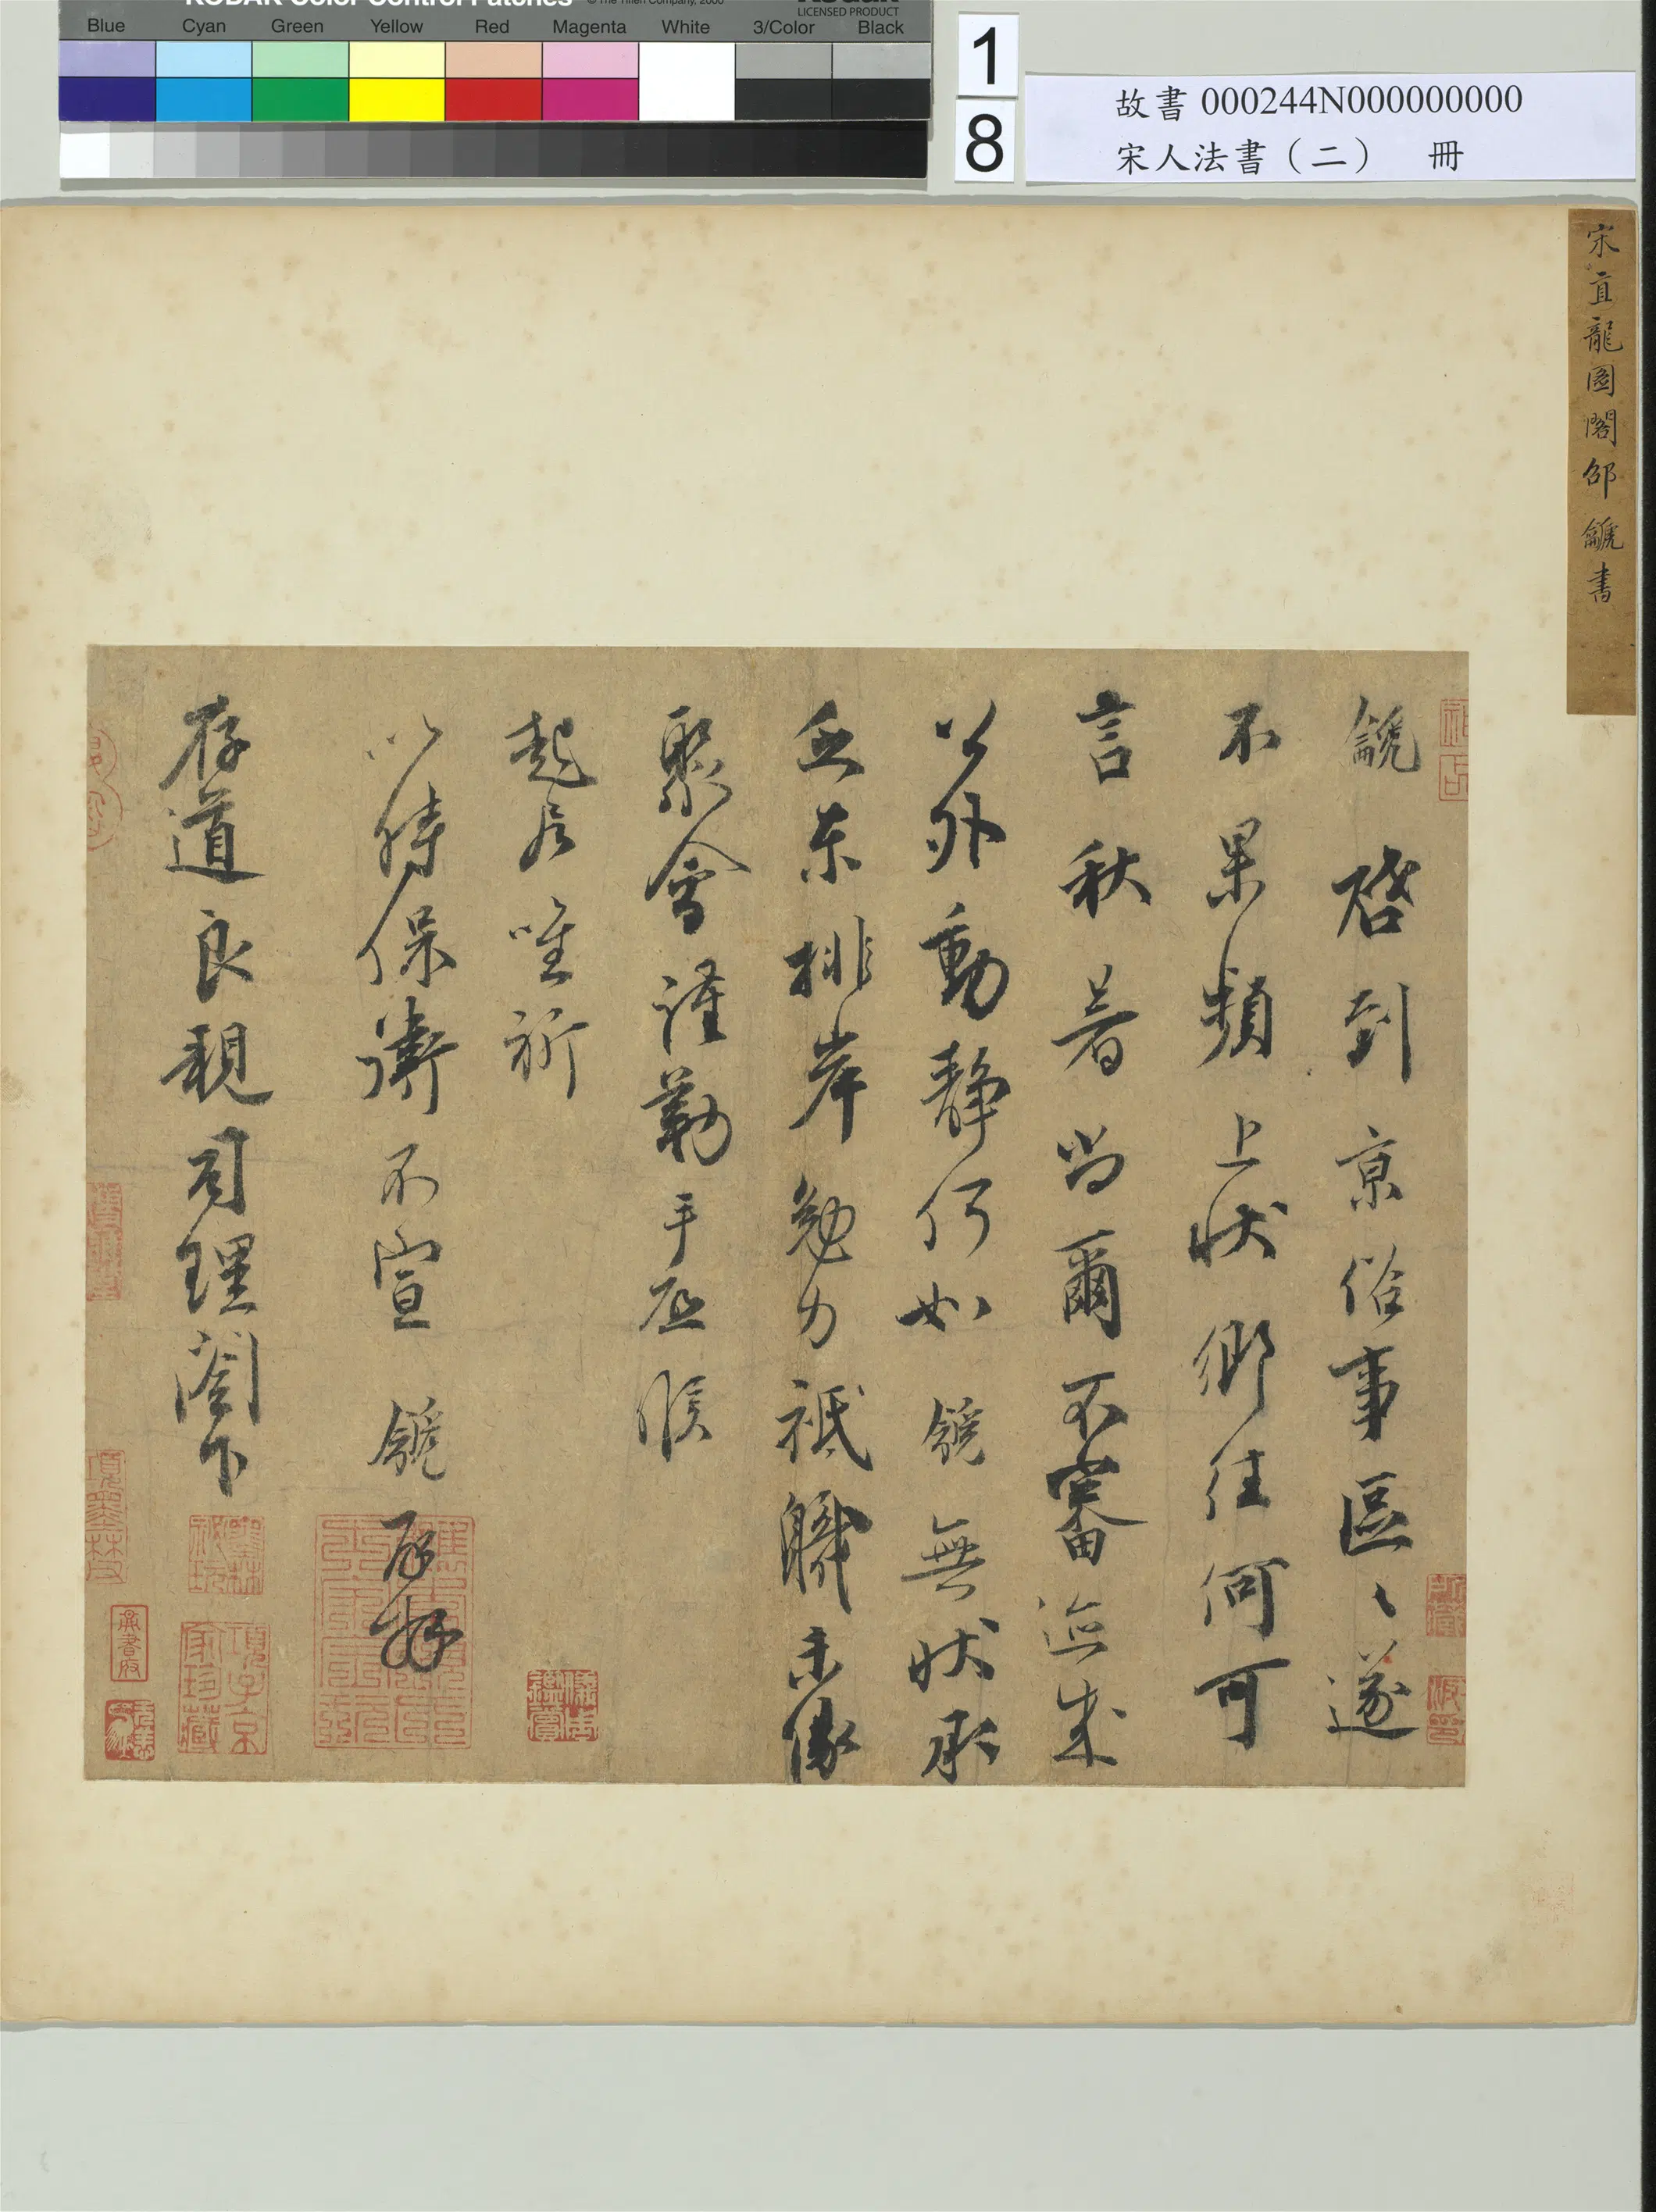 KODAK Color Control Patches
© The Tiffen Company, 2000
LICENSED PRODUCT
Blue Cyan Green Yellow Red Magenta White 3/Color Black
1
8
故書 000244N000000000
宋人法書（二） 冊
宋直龍圖閣邵䶵書
䶵 啓到京俗事區〻遂
不果頻上狀鄉往何可
言秋暑尚爾不審邇來
公外動靜何如䶵無狀承
乏東排岸勉力祗職未緣
聚會謹勒手啓候
起居唯祈
以時保衛不宣 䶵 再拜
存道良親司理閤下
項子京家珍藏